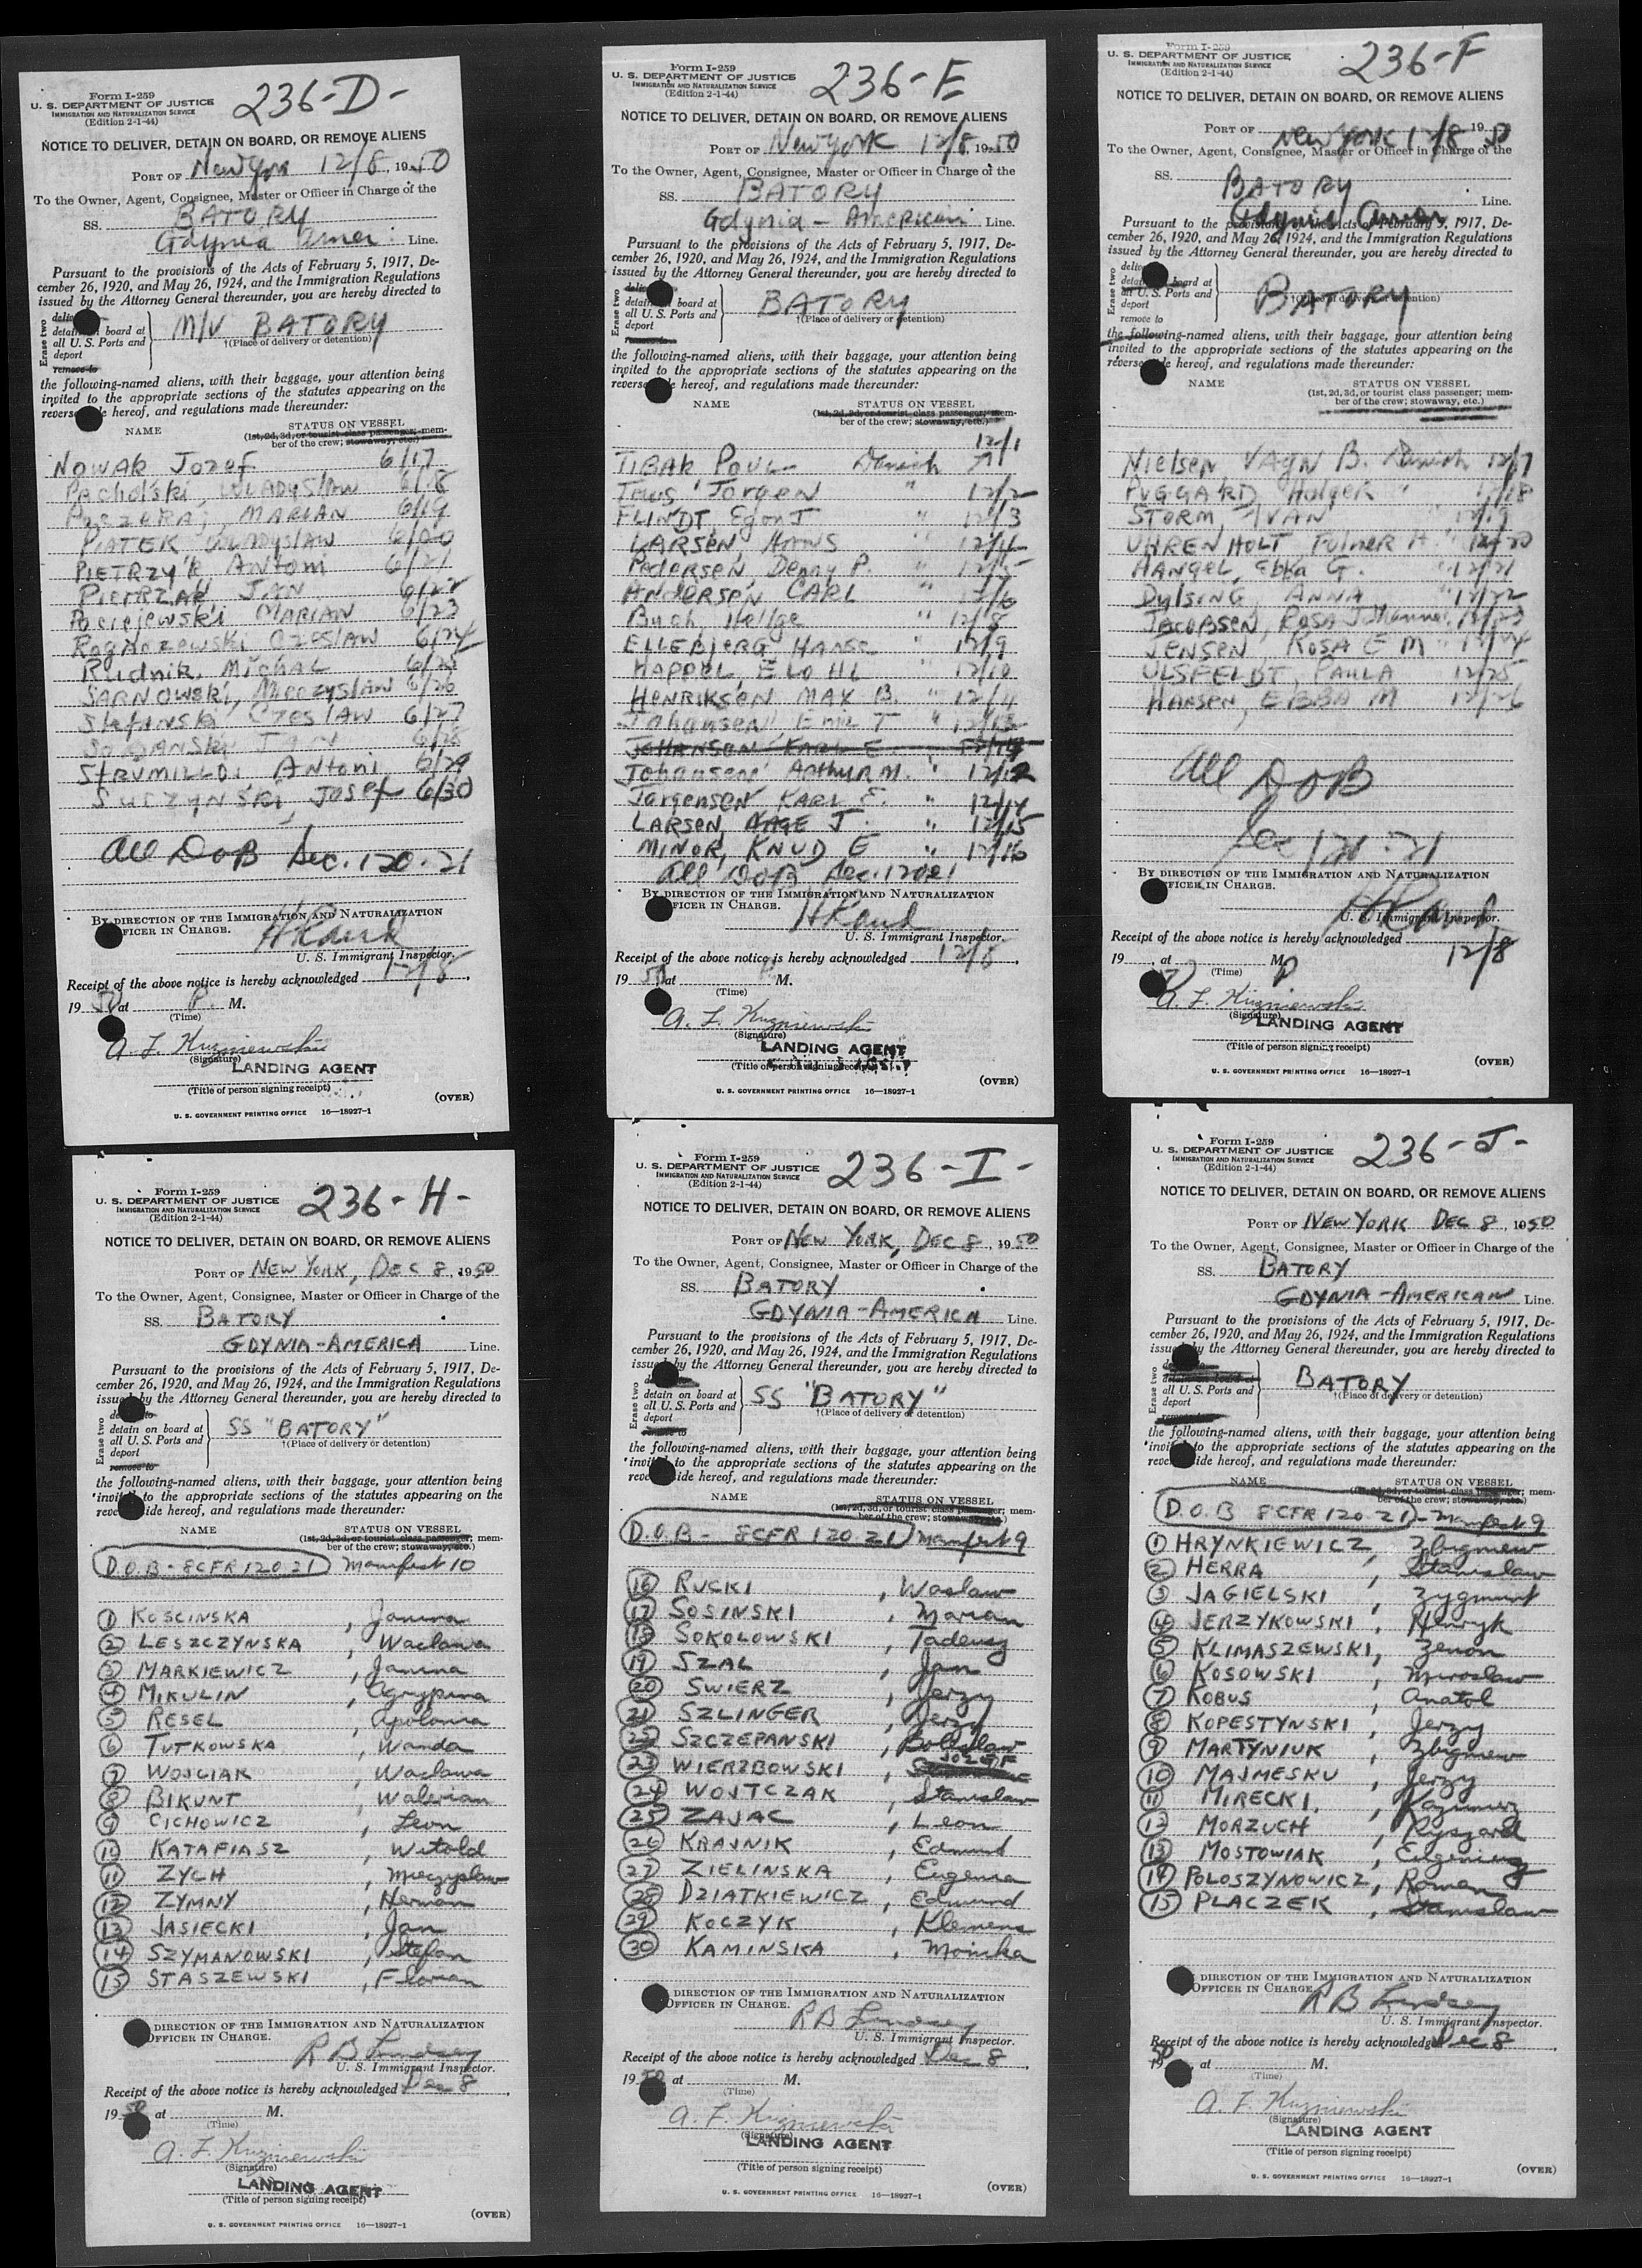 Form I-259
U. S. DEPARTMENT OF JUSTICE
IMMIGRATION AND NATURALIZATION SERVICE
(Edition 2-1-44)
236-D-
NOTICE TO DELIVER, DETAIN ON BOARD, OR REMOVE ALIENS
PORT OF New York 12/8, 1950
To the Owner, Agent, Consignee, Master or Officer in Charge of the
SS. BATORY
Gdynia Amer. Line.
Pursuant to the provisions of the Acts of February 5, 1917, De-
cember 26, 1920, and May 26, 1924, and the Immigration Regulations
issued by the Attorney General thereunder, you are hereby directed to
Erase two
detain on board at
all U. S. Ports and
deport
remove to
M/V BATORY
†(Place of delivery or detention)
the following-named aliens, with their baggage, your attention being
invited to the appropriate sections of the statutes appearing on the
reverse hereof, and regulations made thereunder:
NAME STATUS ON VESSEL
(1st, 2d, 3d, or tourist class passenger; mem-
ber of the crew; stowaway, etc.)
NOWAK Jozef 6/17
Pacholski, WLADYSLAW 6/18
MARIAN 6/19
PIATEK WLADYSLAW 6/20
PIETRZYK Antoni 6/21
PIETRZAK JAN 6/22
Pociejewski MARIAN 6/23
CZESLAW 6/24
Rudnik, Michal 6/25
SARNOWSKI, Mieczyslaw 6/26
Stefanski CZESLAW 6/27
6/28
STRUMILLO, Antoni 6/29
SUCZYNSKI, Josef 6/30
All DOB Sec. 120.21
BY DIRECTION OF THE IMMIGRATION AND NATURALIZATION
OFFICER IN CHARGE.
U. S. Immigrant Inspector.
Receipt of the above notice is hereby acknowledged 12/8,
1950 at P. M.
(Time)
A. F. Kuzniewski
(Signature)
LANDING AGENT
(Title of person signing receipt)
(OVER)
U. S. GOVERNMENT PRINTING OFFICE 16—18927-1
Form I-259
U. S. DEPARTMENT OF JUSTICE
IMMIGRATION AND NATURALIZATION SERVICE
(Edition 2-1-44)
236-E
NOTICE TO DELIVER, DETAIN ON BOARD, OR REMOVE ALIENS
PORT OF New York 12/8, 1950
To the Owner, Agent, Consignee, Master or Officer in Charge of the
SS. BATORY
Gdynia - American Line.
Pursuant to the provisions of the Acts of February 5, 1917, De-
cember 26, 1920, and May 26, 1924, and the Immigration Regulations
issued by the Attorney General thereunder, you are hereby directed to
Erase two
detain on board at
all U. S. Ports and
deport
remove to
BATORY
†(Place of delivery or detention)
the following-named aliens, with their baggage, your attention being
invited to the appropriate sections of the statutes appearing on the
reverse hereof, and regulations made thereunder:
NAME STATUS ON VESSEL
(1st, 2d, 3d, or tourist class passenger; mem-
ber of the crew; stowaway, etc.)
POUL Danish 12/1
Jorgen " 12/2
FLINDT, Egon J " 12/3
LARSEN, HANS " 12/4
Pedersen, Denny P. " 12/5
ANDERSEN, CARL " 12/6
Buch, Helge " 12/8
ELLEBJERG HANS " 12/9
HAPPEL, ELO " 12/10
HENRIKSEN MAX B. " 12/4
Johansen, Emil T " 12/13
JOHANSEN KARL E 12/14
Johansen ARTHUR M. " 12/12
Jorgensen KARL E. " 12/14
LARSEN, AAGE J. " 12/15
MINOR, KNUD E " 12/16
All DOB Sec. 120.21
BY DIRECTION OF THE IMMIGRATION AND NATURALIZATION
OFFICER IN CHARGE.
U. S. Immigrant Inspector.
Receipt of the above notice is hereby acknowledged 12/8,
1950 at P. M.
(Time)
A. F. Kuzniewski
(Signature)
LANDING AGENT
(Title of person signing receipt)
(OVER)
U. S. GOVERNMENT PRINTING OFFICE 16—18927-1
Form I-259
U. S. DEPARTMENT OF JUSTICE
IMMIGRATION AND NATURALIZATION SERVICE
(Edition 2-1-44)
236-F
NOTICE TO DELIVER, DETAIN ON BOARD, OR REMOVE ALIENS
PORT OF New York 12/8 1950
To the Owner, Agent, Consignee, Master or Officer in Charge of the
SS. BATORY Line.
Gdynia Amer
Pursuant to the provisions of the Acts of February 5, 1917, De-
cember 26, 1920, and May 26, 1924, and the Immigration Regulations
issued by the Attorney General thereunder, you are hereby directed to
Erase two
all U. S. Ports and
deport
remove to
BATORY
†(Place of delivery or detention)
the following-named aliens, with their baggage, your attention being
invited to the appropriate sections of the statutes appearing on the
reverse hereof, and regulations made thereunder:
NAME STATUS ON VESSEL
(1st, 2d, 3d, or tourist class passenger; mem-
ber of the crew; stowaway, etc.)
Nielsen VAGN B. Danish 12/17
PUGGARD, Holger " 12/18
STORM, IVAN " 12/19
UHRENHOLT Folmer H. " 12/20
HANGEL, Ebba G. " 12/21
Dylsing, ANNA " 12/22
JACOBSEN, Rosa Johanne 12/23
JENSEN, ROSA E M " 12/24
ULSFELDT, PAULA 12/25
HANSEN, EBBA M 12/26
All DOB
Sec 120.21
BY DIRECTION OF THE IMMIGRATION AND NATURALIZATION
OFFICER IN CHARGE.
U. S. Immigrant Inspector.
Receipt of the above notice is hereby acknowledged 12/8
19 , at P M.
(Time)
A. F. Kuzniewski
(Signature)
LANDING AGENT
(Title of person signing receipt)
(OVER)
U. S. GOVERNMENT PRINTING OFFICE 16—18927-1
Form I-259
U. S. DEPARTMENT OF JUSTICE
IMMIGRATION AND NATURALIZATION SERVICE
(Edition 2-1-44)
236-H-
NOTICE TO DELIVER, DETAIN ON BOARD, OR REMOVE ALIENS
PORT OF NEW YORK, DEC 8, 1950
To the Owner, Agent, Consignee, Master or Officer in Charge of the
SS. BATORY
GDYNIA-AMERICA Line.
Pursuant to the provisions of the Acts of February 5, 1917, De-
cember 26, 1920, and May 26, 1924, and the Immigration Regulations
issued by the Attorney General thereunder, you are hereby directed to
Erase two
detain on board at
all U. S. Ports and
deport
remove to
SS "BATORY"
†(Place of delivery or detention)
the following-named aliens, with their baggage, your attention being
invited to the appropriate sections of the statutes appearing on the
reverse side hereof, and regulations made thereunder:
NAME STATUS ON VESSEL
(1st, 2d, 3d, or tourist class passenger; mem-
ber of the crew; stowaway, etc.)
D.O.B - 8CFR 120.21 Manifest 10
1 KOSCINSKA, Janina
2 LESZCZYNSKA, Waclawa
3 MARKIEWICZ, Janina
4 MIKULIN, Agrypina
5 RESEL, Apolonia
6 TUTKOWSKA, Wanda
7 WOJCIAK, Waclawa
8 BIKUNT, Walerian
9 CICHOWICZ, Leon
10 KATAFIASZ, Witold
11 ZYCH, Mieczyslaw
12 ZYMNY, Herman
13 JASIECKI, Jan
14 SZYMANOWSKI, Stefan
15 STASZEWSKI, Florian
DIRECTION OF THE IMMIGRATION AND NATURALIZATION
OFFICER IN CHARGE.
R B Lindsey
U. S. Immigrant Inspector.
Receipt of the above notice is hereby acknowledged Dec 8,
1950 at M.
(Time)
A. F. Kuzniewski
(Signature)
LANDING AGENT
(Title of person signing receipt)
(OVER)
U. S. GOVERNMENT PRINTING OFFICE 16—18927-1
Form I-259
U. S. DEPARTMENT OF JUSTICE
IMMIGRATION AND NATURALIZATION SERVICE
(Edition 2-1-44)
236-I-
NOTICE TO DELIVER, DETAIN ON BOARD, OR REMOVE ALIENS
PORT OF NEW YORK, DEC 8, 1950
To the Owner, Agent, Consignee, Master or Officer in Charge of the
SS. BATORY
GDYNIA-AMERICA Line.
Pursuant to the provisions of the Acts of February 5, 1917, De-
cember 26, 1920, and May 26, 1924, and the Immigration Regulations
issued by the Attorney General thereunder, you are hereby directed to
Erase two
detain on board at
all U. S. Ports and
deport
remove to
SS "BATORY"
†(Place of delivery or detention)
the following-named aliens, with their baggage, your attention being
invited to the appropriate sections of the statutes appearing on the
reverse side hereof, and regulations made thereunder:
NAME STATUS ON VESSEL
(1st, 2d, 3d, or tourist class passenger; mem-
ber of the crew; stowaway, etc.)
D.O.B - 8CFR 120.21 Manifest 9
16 RUCKI, Waslaw
17 SOSINSKI, Marian
18 SOKOLOWSKI, Tadeusz
19 SZAL, Jan
20 SWIERZ, Jerzy
21 SZLINGER, Jerzy
22 SZCZEPANSKI, Boleslaw
23 WIERZBOWSKI, JOZEF
24 WOJTCZAK, Stanislaw
25 ZAJAC, Leon
26 KRAJNIK, Edmund
27 ZIELINSKA, Eugenia
28 DZIATKIEWICZ, Edmund
29 KOCZYK, Klemens
30 KAMINSKA, Monika
DIRECTION OF THE IMMIGRATION AND NATURALIZATION
OFFICER IN CHARGE.
R B Lindsey
U. S. Immigrant Inspector.
Receipt of the above notice is hereby acknowledged Dec 8,
1950 at M.
(Time)
A. F. Kuzniewski
(Signature)
LANDING AGENT
(Title of person signing receipt)
(OVER)
U. S. GOVERNMENT PRINTING OFFICE 16—18927-1
Form I-259
U. S. DEPARTMENT OF JUSTICE
IMMIGRATION AND NATURALIZATION SERVICE
(Edition 2-1-44)
236-J-
NOTICE TO DELIVER, DETAIN ON BOARD, OR REMOVE ALIENS
PORT OF NEW YORK DEC 8, 1950
To the Owner, Agent, Consignee, Master or Officer in Charge of the
SS. BATORY
GDYNIA-AMERICAN Line.
Pursuant to the provisions of the Acts of February 5, 1917, De-
cember 26, 1920, and May 26, 1924, and the Immigration Regulations
issued by the Attorney General thereunder, you are hereby directed to
Erase two
detain on board at
all U. S. Ports and
deport
remove to
BATORY
†(Place of delivery or detention)
the following-named aliens, with their baggage, your attention being
invited to the appropriate sections of the statutes appearing on the
reverse side hereof, and regulations made thereunder:
NAME STATUS ON VESSEL
(1st, 2d, 3d, or tourist class passenger; mem-
ber of the crew; stowaway, etc.)
D.O.B 8CFR 120.21 - Manifest 9
1 HRYNKIEWICZ, Zbigniew
2 HERRA, Stanislaw
3 JAGIELSKI, Zygmunt
4 JERZYKOWSKI, Henryk
5 KLIMASZEWSKI, Zenon
6 KOSOWSKI, Miroslaw
7 KOBUS, Anatol
8 KOPESTYNSKI, Jerzy
9 MARTYNIUK, Zbigniew
10 MAJMESKU, Jerzy
11 MIRECKI, Kazimierz
12 MORZUCH, Ryszard
13 MOSTOWIAK, Eugeniusz
14 POLOSZYNOWICZ, Roman
15 PLACZEK, Stanislaw
DIRECTION OF THE IMMIGRATION AND NATURALIZATION
OFFICER IN CHARGE.
R B Lindsey
U. S. Immigrant Inspector.
Receipt of the above notice is hereby acknowledged Dec 8
1950, at M.
(Time)
A. F. Kuzniewski
(Signature)
LANDING AGENT
(Title of person signing receipt)
(OVER)
U. S. GOVERNMENT PRINTING OFFICE 16—18927-1